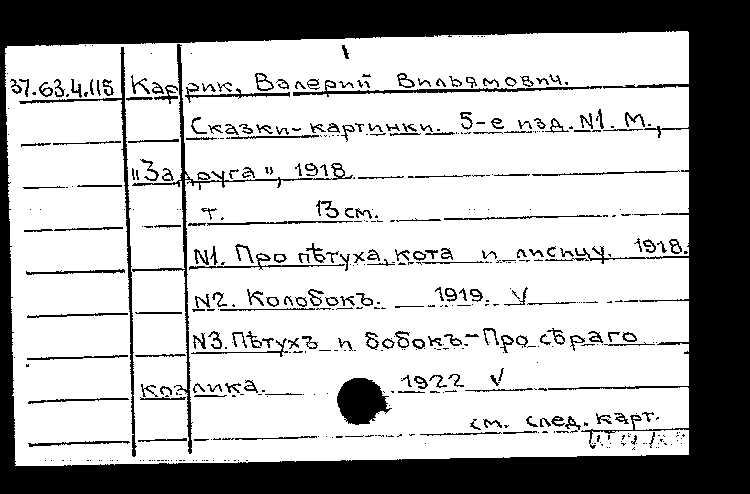 37.63.4.115 Каррик, Валерий Вильямович.
Сказки-картинки. 5-е изд. N1. М.,
"Задруга", 1918
т. 13 см.
N1. Про пѣтуха, кота и лисицу. 1918.
N2. Колобокъ. 1919. V
N3. Пѣтухъ и бобокъ.-Про сѣраго
козлика. 1922 V
см. след. карт.